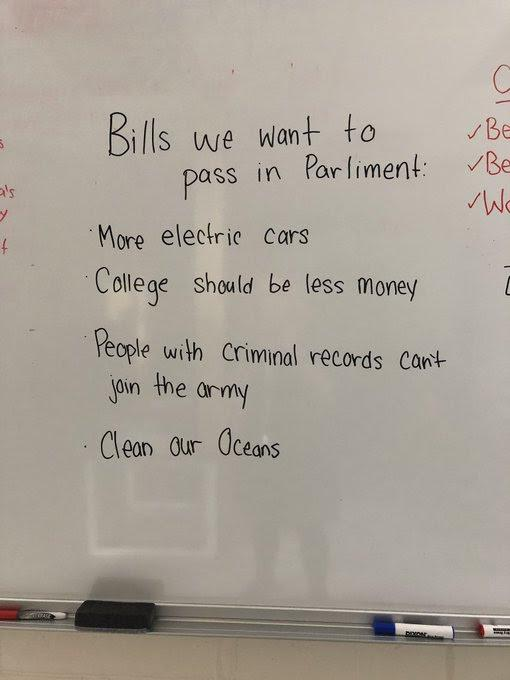 Bills we want to
pass in Parliment:
· More electric cars
· College should be less money
· People with criminal records can't
join the army
· Clean our Oceans
a's
✓Be
✓Be
✓Wo
DIXON